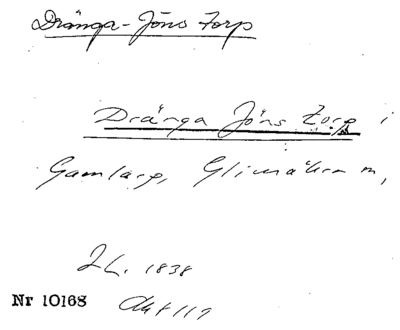 Dränga-Jöns Torp
Dränga Jöns Torp i
Gamlarp, Glimåkra
1838
Nr 10168